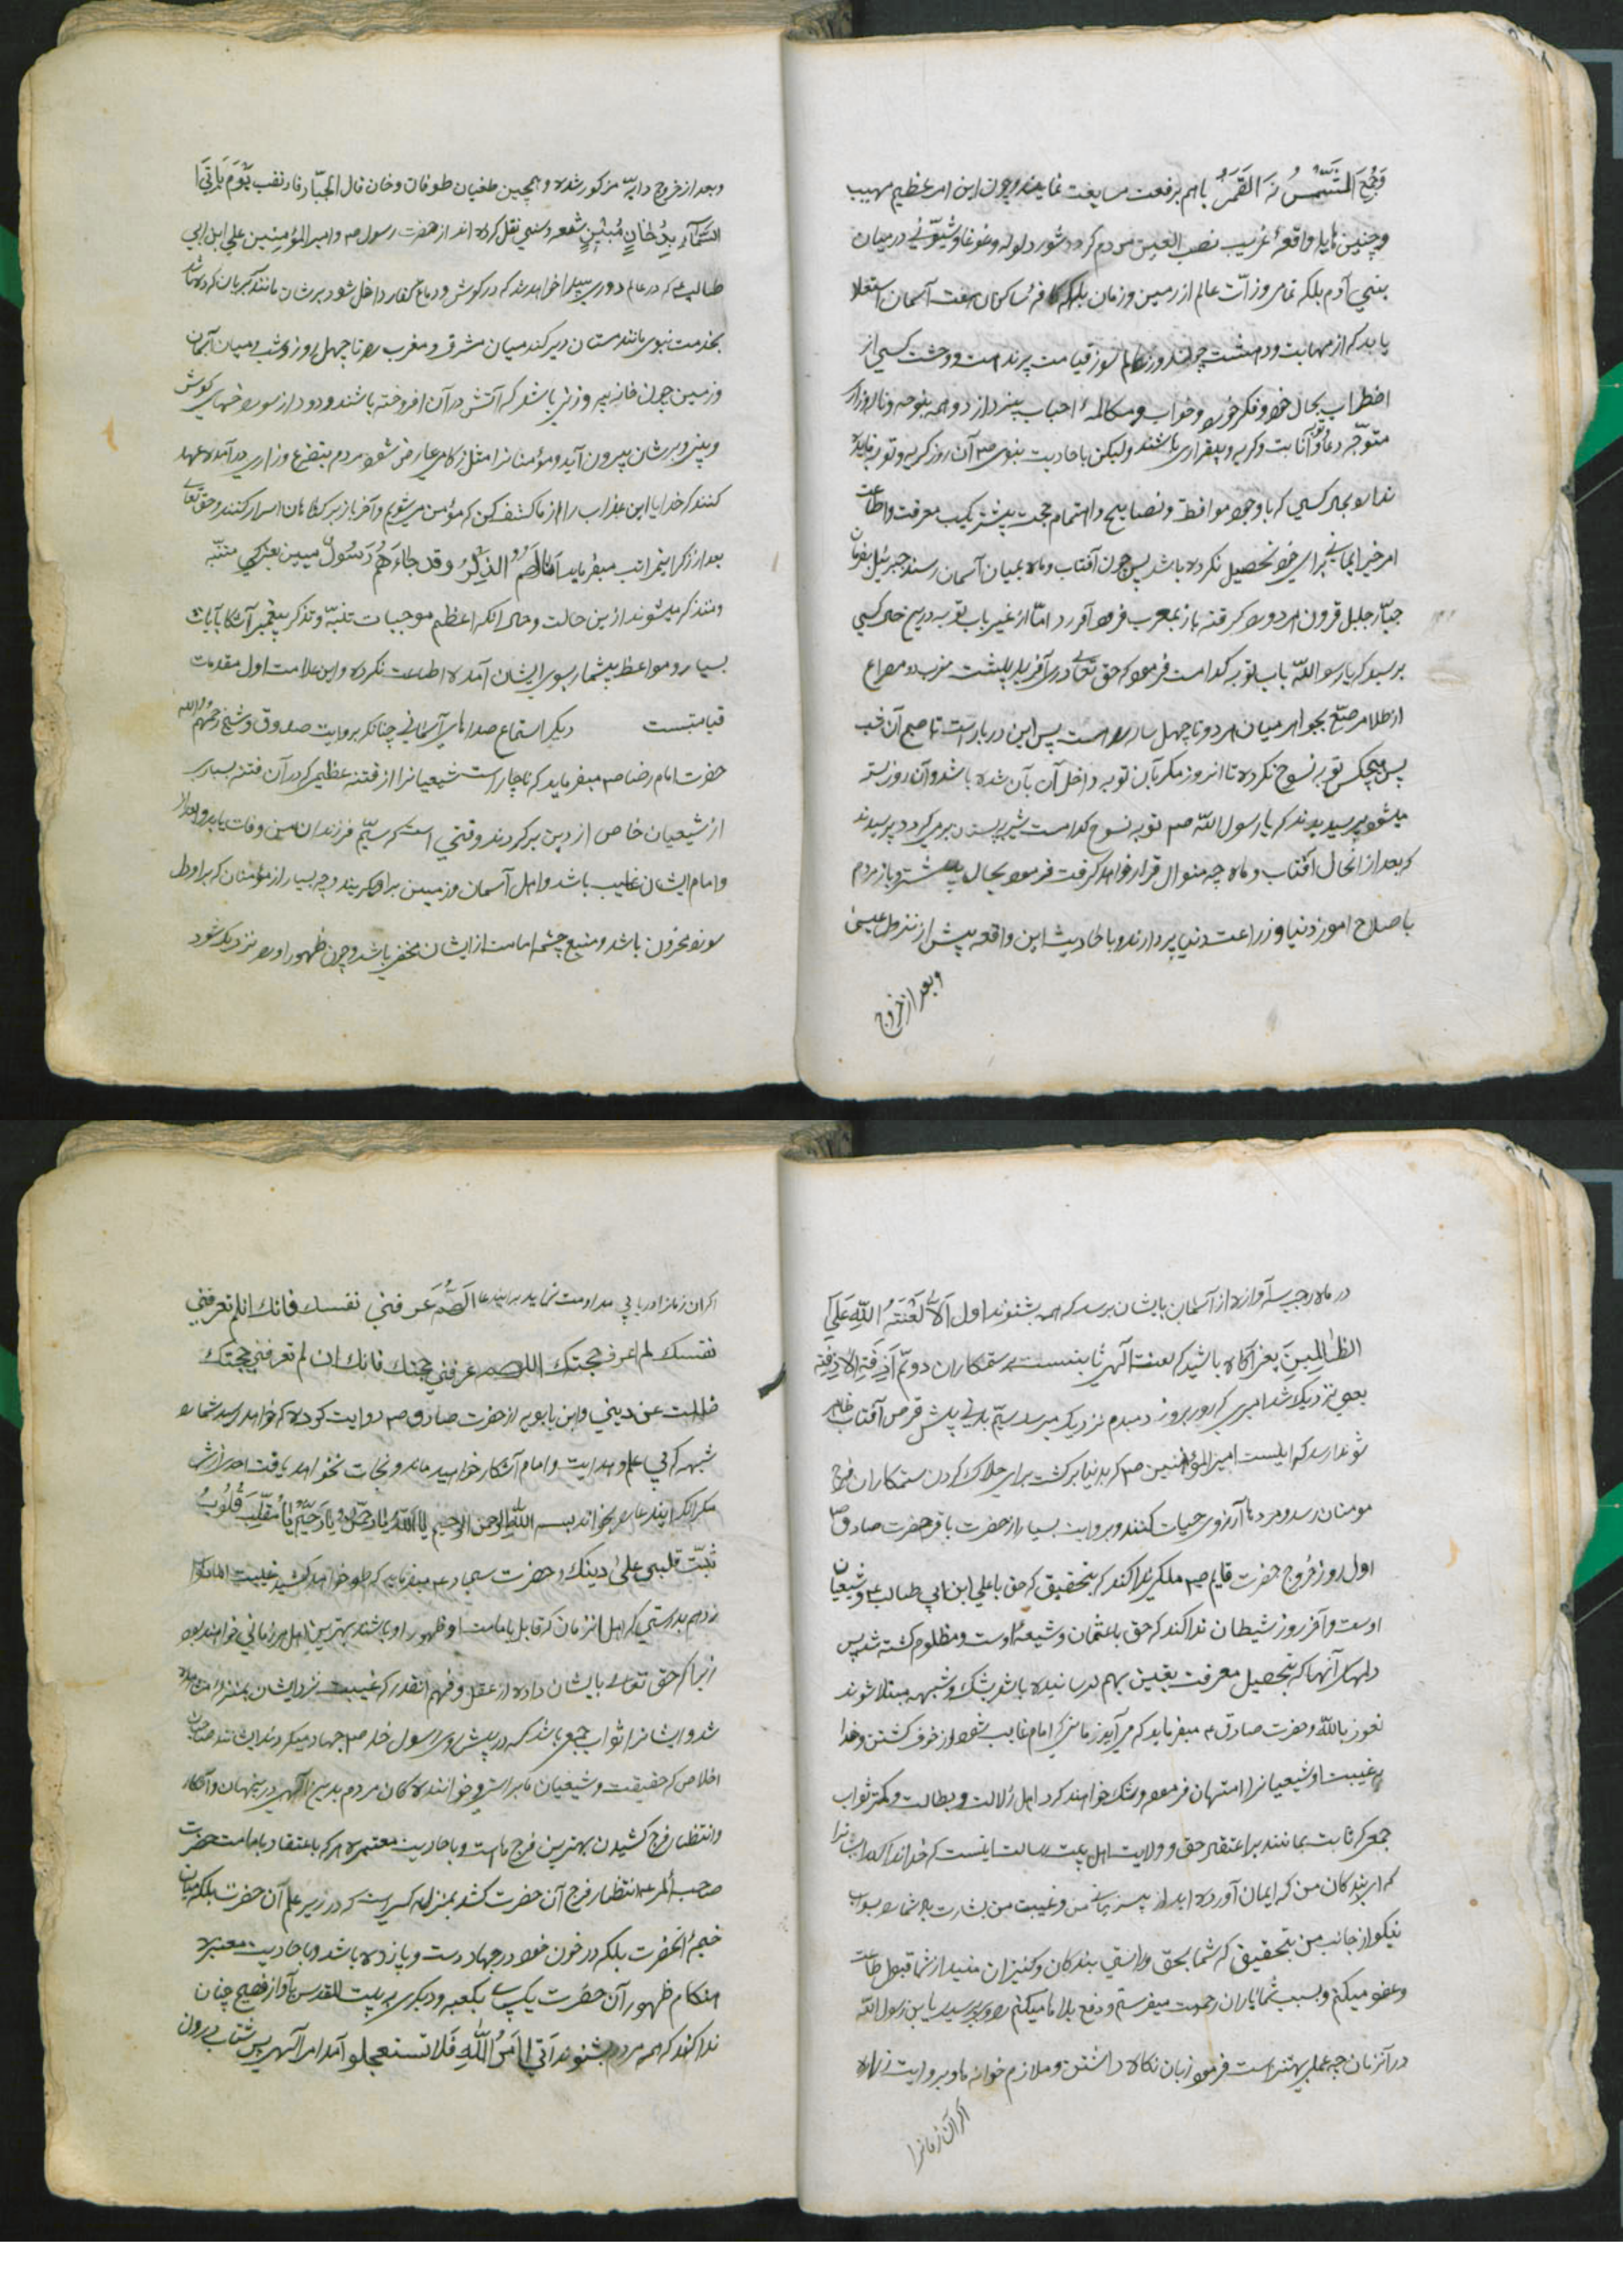 وَجُمِعَ الشَّمْسُ وَ القَمَرُ باهم برفعت مسابقت نمایند و چون این امر عظیم مهیب
و چنین هایله واقعهٔ غریب نصب العین مردم کرده شور و لوله و غوغا و شیونی در میان
بنی آدم بلکه تمام ذرات عالم از زمین و زمان بلکه کافهٔ ساکنان هفت آسمان استعلا
یابد که از مهابت و دهشت چون روز عالم سوز قیامت و وحشت کسی از
اضطراب بحال خود و فکر خورد و خواب و مکالمهٔ احباب نپردازد و همه بنوحه و ناله وزاری
متوجّه دعا و انابت و گریه و بیقراری باشند ولیکن باحادیث نبوی صم آن روز گریه و توبه فایده
ندارد بحال کسی که باوجود مواعظ و نصایح و اهتمام حجت پیشتر کسب معرفت و اطاعت
امر خیر ایمانی برای خود تحصیل نکرده باشد پس چون آفتاب و ماه بمیان آسمان رسند جبرئیل بفرمان
جبّار جلیل قرون هر دو را گرفته باز بمغرب فرود آورد امّا از غیر باب توبه درین حال کسی
پرسید که یا رسول اللّه باب توبه کدامست فرمود که حق تعالی دری آفریده پشت مغرب دو مصراع
از طلا مرصّع بجواهر میان هر دو تا چهل ساله راه است پس این در باز است تا صبح آن شب
پس هیچکس توبه نسوح نکرده تا انروز مگر آن توبه داخل آن بآن شده باشد و آن روز بسته
میشود پرسیدند که یا رسول اللّه صم توبه نسوح کدامست شیر به پستان برمیگردد پرسیدند
که بعد از انحال آفتاب و ماه چه منوال قرار خواهد گرفت فرمود بحال پیشتر و باز مردم
باصلاح امور دنیا و زراعت دنیا پردازند و باحادیث این واقعه پیش از نزول عیسی
وبعد از خروج
وبعد از خروج دابّه مذکور شده و همچنین طغیان طوفان دخان قال الجبّار فارتقب یَوْمَ یَأتِی
السَّمَآءِ بِدُخَانٍ مُبِیْنٍ شیعه و سنی نقل کرده اند از حضرت رسول صم و امیر المؤمنین علی ابن ابی
طالب ع که در عالم دودی پیدا خواهد شد که در گوش و دماغ کفار داخل شود
بخدمت نبوی مانند مستان دیگر کند میان مشرق و مغرب را تا چهل روز و شب و میان آسمان
و زمین چون خانه پر وزنی باشد که آتش در آن افروخته باشند و دود از سوراخهای گوش
و بینی و برشان بیرون آید و مؤمنانرا مثل زکامی عارض شود مردم بتضرع و زاری درآمده عهد
کنند که خدایا این عذاب را از ما کشف کن که مؤمن میشویم و آخر باز بر گناهان اسرار کنند و حق تعالی
بعد از ذکر اینمراتب میفرماید اَنّٰی لَهُمُ الذِّکْرُ وقد جاءَهُمْ رَسُولٌ مبین یعنی کی متنبه
و متذکر میشوند ازین حالت و حال انکه اعظم موجبات تنبّه و تذکر پیغمبر آشکار آیات
بسیار و مواعظ بیشمار بسوی ایشان آمده اطاعت نکرده و این علامت اول مقدمات
قیامتست    دیگر استماع صداهای آسمانی چنانکه بروایت صدوق و شیخ رحمهم اللّه
حضرت امام رضا صم میفرماید که ناچار است شیعیانرا از فتنه عظیم که در آن فتنه بسیاری
از شیعیان خاص از دین برگردند وقتی است که سیّم فرزندان من وفات یابد و بعد از
و امام ایشان غایب باشد و اهل آسمان و زمین براو گریند و چه بسیار از مؤمنان که براو دل
سوز و محزون باشد و منبع چشمه امامت از ایشان مخفی باشد و چون ظهور او نزدیک شود
در ماه رجب سه آوازه از آسمان بایشان برسد که همه بشنوند اول اَلاٰ لَعْنَتُ اللّٰهِ عَلَی
الظّٰالِمِینَ یعنی آگاه باشید که لعنت آلهی ثابتست بر ستمکاران دویّم اَزِفَتِ الاٰزِفَة
یعنی نزدیک شد امری که روز بروز و دمبدم نزدیک میرسد سیّم بدنی پیش قرص آفتاب ظاهر
شود ندا رسد که اینست امیر المؤمنین صم که بدنیا برگشت برای هلاک کردن ستمکاران فرج
مومنان رسد و مرده‌ها آرزوی حیات کنند و بروایت بسیار از حضرت باقر و حضرت صادق صم
اول روز خروج حضرت قایم صم ملکی ندا کند که بتحقیق که حق با علی ابن ابی طالب ع و شیعیان
اوست و آخر روز شیطان ندا کند که حق با عثمان و شیعهٔ اوست و مظلوم کشته شد پس
دلهای آنها که بتحصیل معرفت یقین بهم نرسانیده باشد بشک و شبهه مبتلا شوند
نعوذ باللّه و حضرت صادق ع میفرماید که می آید زمانی که امام غایب شود از خوف کشتن و خدا
بغیبت او شیعیانرا امتهان فرمود و شک خواهند کرد اهل زلالت و بطالت و کمتر ثواب
جمعی که ثابت بمانند بر اعتقاد حق و ولایت اهل بیت رسالت اینست که خدا ندا کند ایشانرا
که ای بندگان من که ایمان آورده اید و غیبت من بشارت باد شما را بثواب
نیکو از جانب من بتحقیق که شما بحق و راستی بندگان و کنیزان منید از شما قبول طاعت
و عفو میکنم و بسبب شما باران رحمت میفرستم و دفع بلاها میکنم راوی پرسید یا بن رسول اللّه
در آنزمان چه عملی بهتر است فرمود زبان نگاه داشتن و ملازم خوانه ها و بروایت زراره
اگر آن زمانرا
اگر ان زمانرا دریابی مداومت نماید براین دعا اَللّٰهُمَّ عَرِّفنی نفسك فانك ان لم تعرفنی
نفسك لم اعرف حجتك اللهم عرفنی حجتك فانك ان لم تعرفنی حجتك
ضللت عن دینی و ابن بابویه از حضرت صادق صم روایت کرده که خواهد رسید شما را
شبهه که بی علم و هدایت و امام آشکار خواهید ماند و نجات نخواهد یافت احدی ازش
مگر آنکه ایندعا را بخواند بسم اللّه الرحمن الرحیم یا اَللّٰه یا رَحمٰن یا رَحیم یٰا مُقلّبَ قُلُوبُ
ثبّت قلبی علیٰ دینك و حضرت سجاد ع میفرماید که طول خواهد کشید غیبت امام
زدهم بدرستی که اهل انزمان که قایل بامامت او ظهور او باشند بهترین اهل هر زمانی خواهند بود
زیرا که حق تعالی بایشان داده از عقل و فهم انقدر که غیبت نزد ایشان بمنزله مشاهده
شد و ایشانرا ثواب جمعی باشد که در پیش روی رسول خدا صم جهاد میکردند ایشانند صاحبان
اخلاص که حقیقت و شیعیان ما براستی و خوانندگان مردم بدین آلهی در پنهان و آشکار
و انتظار فرج کشیدن بهترین فرج ها است و باحادیث معتمره هر که باعتقاد بامامت حضرت
صاحب الامر ع انتظار فرج آن حضرت کشد بمنزله کسی است که در زیر علم آن حضرت بلکه میان
خیمهٔ انحضرت بلکه در خون خود در جهاد دست و پا زده باشد و باحادیث معتبره
هنگام ظهور آن حضرت یک پای بکعبه و دیگری به بیت المقدس بآواز فصیح چنان
ندا کند که همه مردم بشنوند اَتیٰ اَمرُ اللّٰهِ فَلا تستعجلو آمد امر آلهی پس شتاب